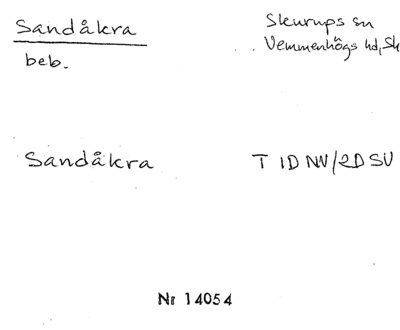 Sandåkra
Skurups sn
Vemmenhögs hd, Sk
beb.
Sandåkra
T 1D NV/2D SV
Nr 14054